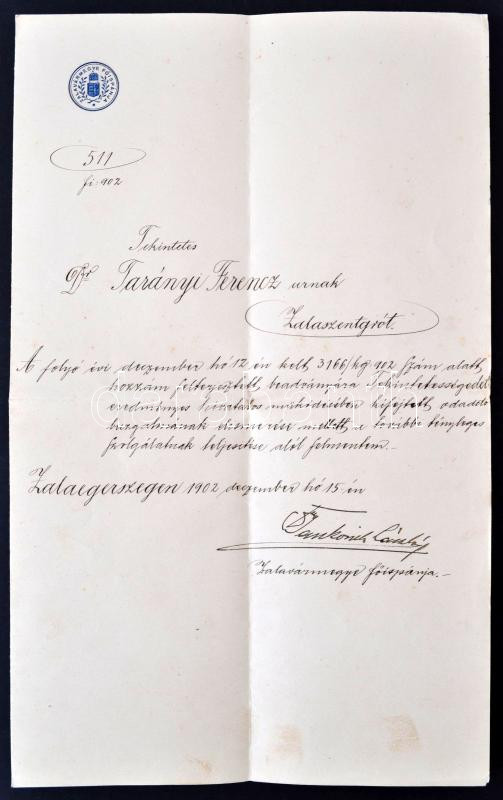 ZALAVÁRMEGYE FŐISPÁNJA
511
fi: 902
Tekintetes
Dr. Tarányi Ferencz urnak
Zalaszentgrót.
A folyó évi deczember hó 12 én kelt, 3166/kg 902 szám alatt
hozzám felterjesztett, beadványára Tekintetességedet
eredményes hivatalos működésében kifejtett, odaadó
buzgalmának elismerése mellett, a további tényleges
szolgálatnak teljesítése alól felmentem.-
Zalaegerszegen 1902 deczember hó 15 én
Jankovich László
Zalavármegye főispánja.-